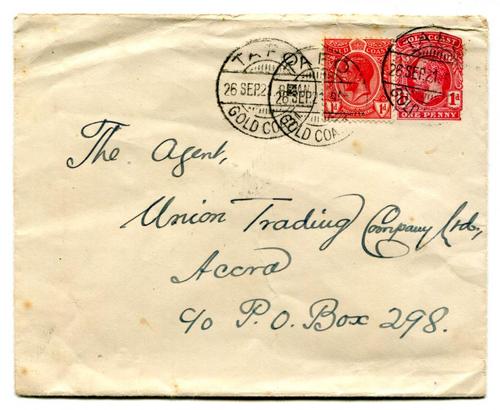 TAFO
26 SEP.21
GOLD CO
26 SEP.2
GOLD COA
GOLD COAST
1d 1d
26 SEP.21
GOLD COAST
1d
ONE PENNY
The Agent,
Union Trading Company Ltd.,
Accra
c/o P.O. Box 298.